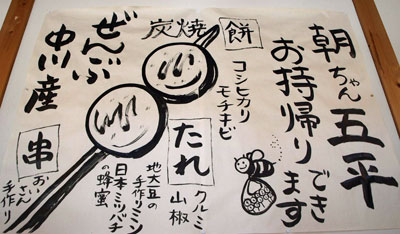 朝ちゃん五平
お持帰りできます
炭焼
餅
コシヒカリ
モチキビ
たれ
クルミ
山椒
地大豆の
手作りミソ
日本ミツバチ
の蜂蜜
ぜんぶ
中川産
串
おじさん
手作り